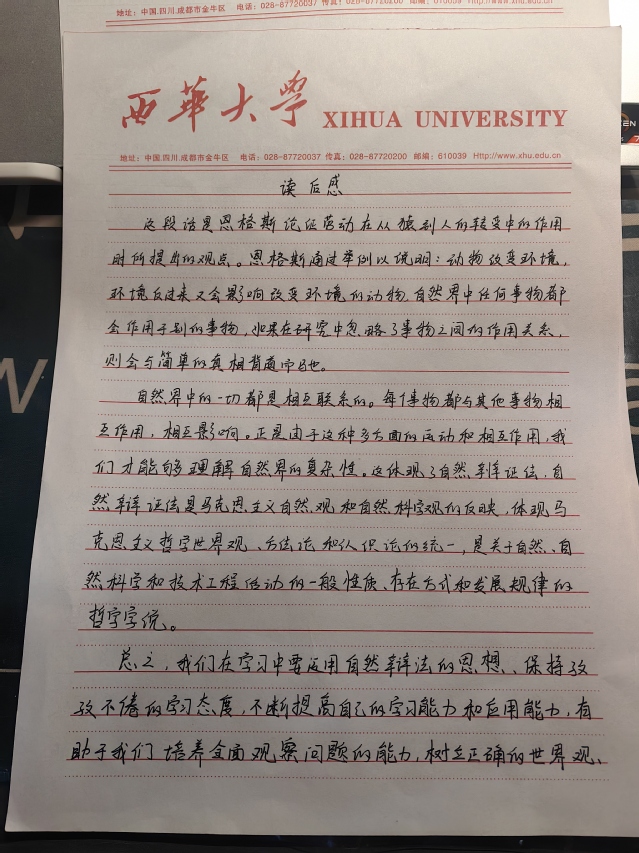 地址：中国.四川.成都市金牛区 电话：028-87720037 传真：028-87720200 邮编：610039 Http://www.xhu.edu.cn
西華大学 XIHUA UNIVERSITY
地址：中国.四川.成都市金牛区 电话：028-87720037 传真：028-87720200 邮编：610039 Http://www.xhu.edu.cn
读后感
这段话是恩格斯论证劳动在从猿到人的转变中的作用
时所提出的观点。恩格斯通过举例以说明：动物改变环境，
环境反过来又会影响改变环境的动物，自然界中任何事物都
会作用于别的事物，如果在研究中忽略了事物之间的作用关系，
则会与简单的真相背道而驰。
自然界中的一切都是相互联系的。每个事物都与其他事物相
互作用，相互影响。正是由于这种多方面的运动和相互作用，我
们才能够理解自然界的复杂性。这体现了自然辩证法，自
然辩证法是马克思主义自然观和自然科学观的反映，体现马
克思主义哲学世界观、方法论和认识论的统一，是关于自然、自
然科学和技术工程活动的一般性质、存在方式和发展规律的
哲学学说。
总之，我们在学习中要运用自然辩法的思想、保持孜
孜不倦的学习态度，不断提高自己的学习能力和应用能力，有
助于我们培养全面观察问题的能力，树立正确的世界观、